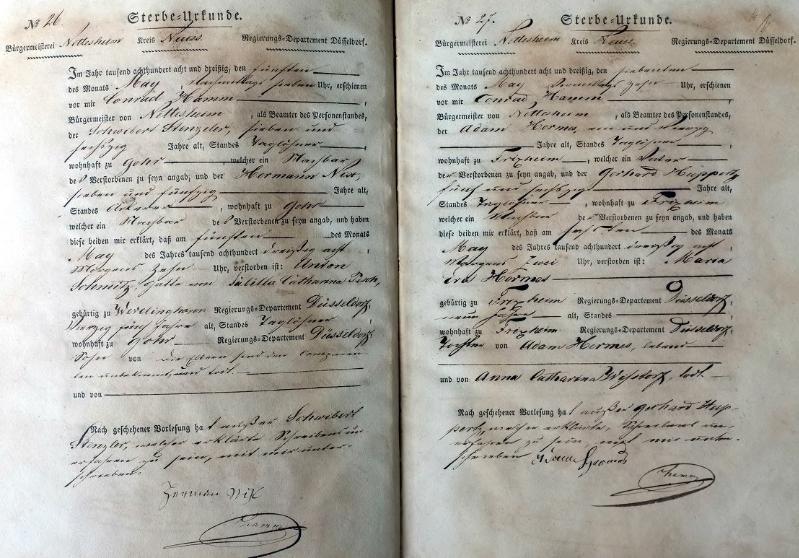 No 26. Sterbe-Urkunde.
Bürgermeisterei Nettesheim Kreis Neuss Regierungs-Departement Düsseldorf.
Im Jahr tausend achthundert acht und dreißig, den fünften
des Monats May Uhr, erschienen
vor mir Conrad Hamm,
Bürgermeister von Nettesheim, als Beamter des Personenstandes,
der Schwibert Stenzeler, sieben und
sechszig Jahre alt, Standes Taglöhner
wohnhaft zu Gohr, welcher ein Nachbar
des Verstorbenen zu seyn angab, und der Hermann Nix,
sieben und fünfzig Jahre alt,
Standes, wohnhaft zu Gohr
welcher ein Nachbar des Verstorbenen zu seyn angab, und haben
diese beiden mir erklärt, daß am fünften des Monats
May des Jahres tausend achthundert dreißig acht,
Morgens zehn Uhr, verstorben ist: Anton
Schmitz, Gatte von Sibilla Catharina
gebürtig zu Regierungs-Departement Düsseldorf,
vierzig fünf Jahre alt, Standes Taglöhner
wohnhaft zu Gohr Regierungs-Departement Düsseldorf
Sohn von die Eltern sind den
unbekannt und todt.
und von
Nach geschehener Vorlesung hat außer Schwibert
Stenzler, welcher erklärte Schreibens un-
erfahren zu sein, mit mir unter-
schrieben.
Herman Nix
Hamm
No 27. Sterbe-Urkunde.
Bürgermeisterei Nettesheim Kreis Neuss Regierungs-Departement Düsseldorf.
Im Jahr tausend achthundert acht und dreißig, den siebenten
des Monats May zehn Uhr, erschienen
vor mir Conrad Hamm,
Bürgermeister von Nettesheim, als Beamter des Personenstandes,
der Adam Hermes,
Jahre alt, Standes Taglöhner
wohnhaft zu Frixheim, welcher ein Vater
der Verstorbenen zu seyn angab, und der Gerhard Huppertz
fünf und sechszig Jahre alt,
Standes Taglöhner, wohnhaft zu Frixheim
welcher ein Nachbar der Verstorbenen zu seyn angab, und haben
diese beiden mir erklärt, daß am sechsten des Monats
May des Jahres tausend achthundert dreißig acht,
Morgens zwei Uhr, verstorben ist: Maria
Eva Hermes
gebürtig zu Frixheim Regierungs-Departement Düsseldorf,
neun Jahre alt, Standes
wohnhaft zu Frixheim Regierungs-Departement Düsseldorf
Tochter von Adam Hermes, lebend
und von Anna Catharina todt.
Nach geschehener Vorlesung hat außer Gerhard Hup-
pertz, welcher erklärte, Schreibens un-
erfahren zu sein, mit mir unter-
schrieben
Hamm